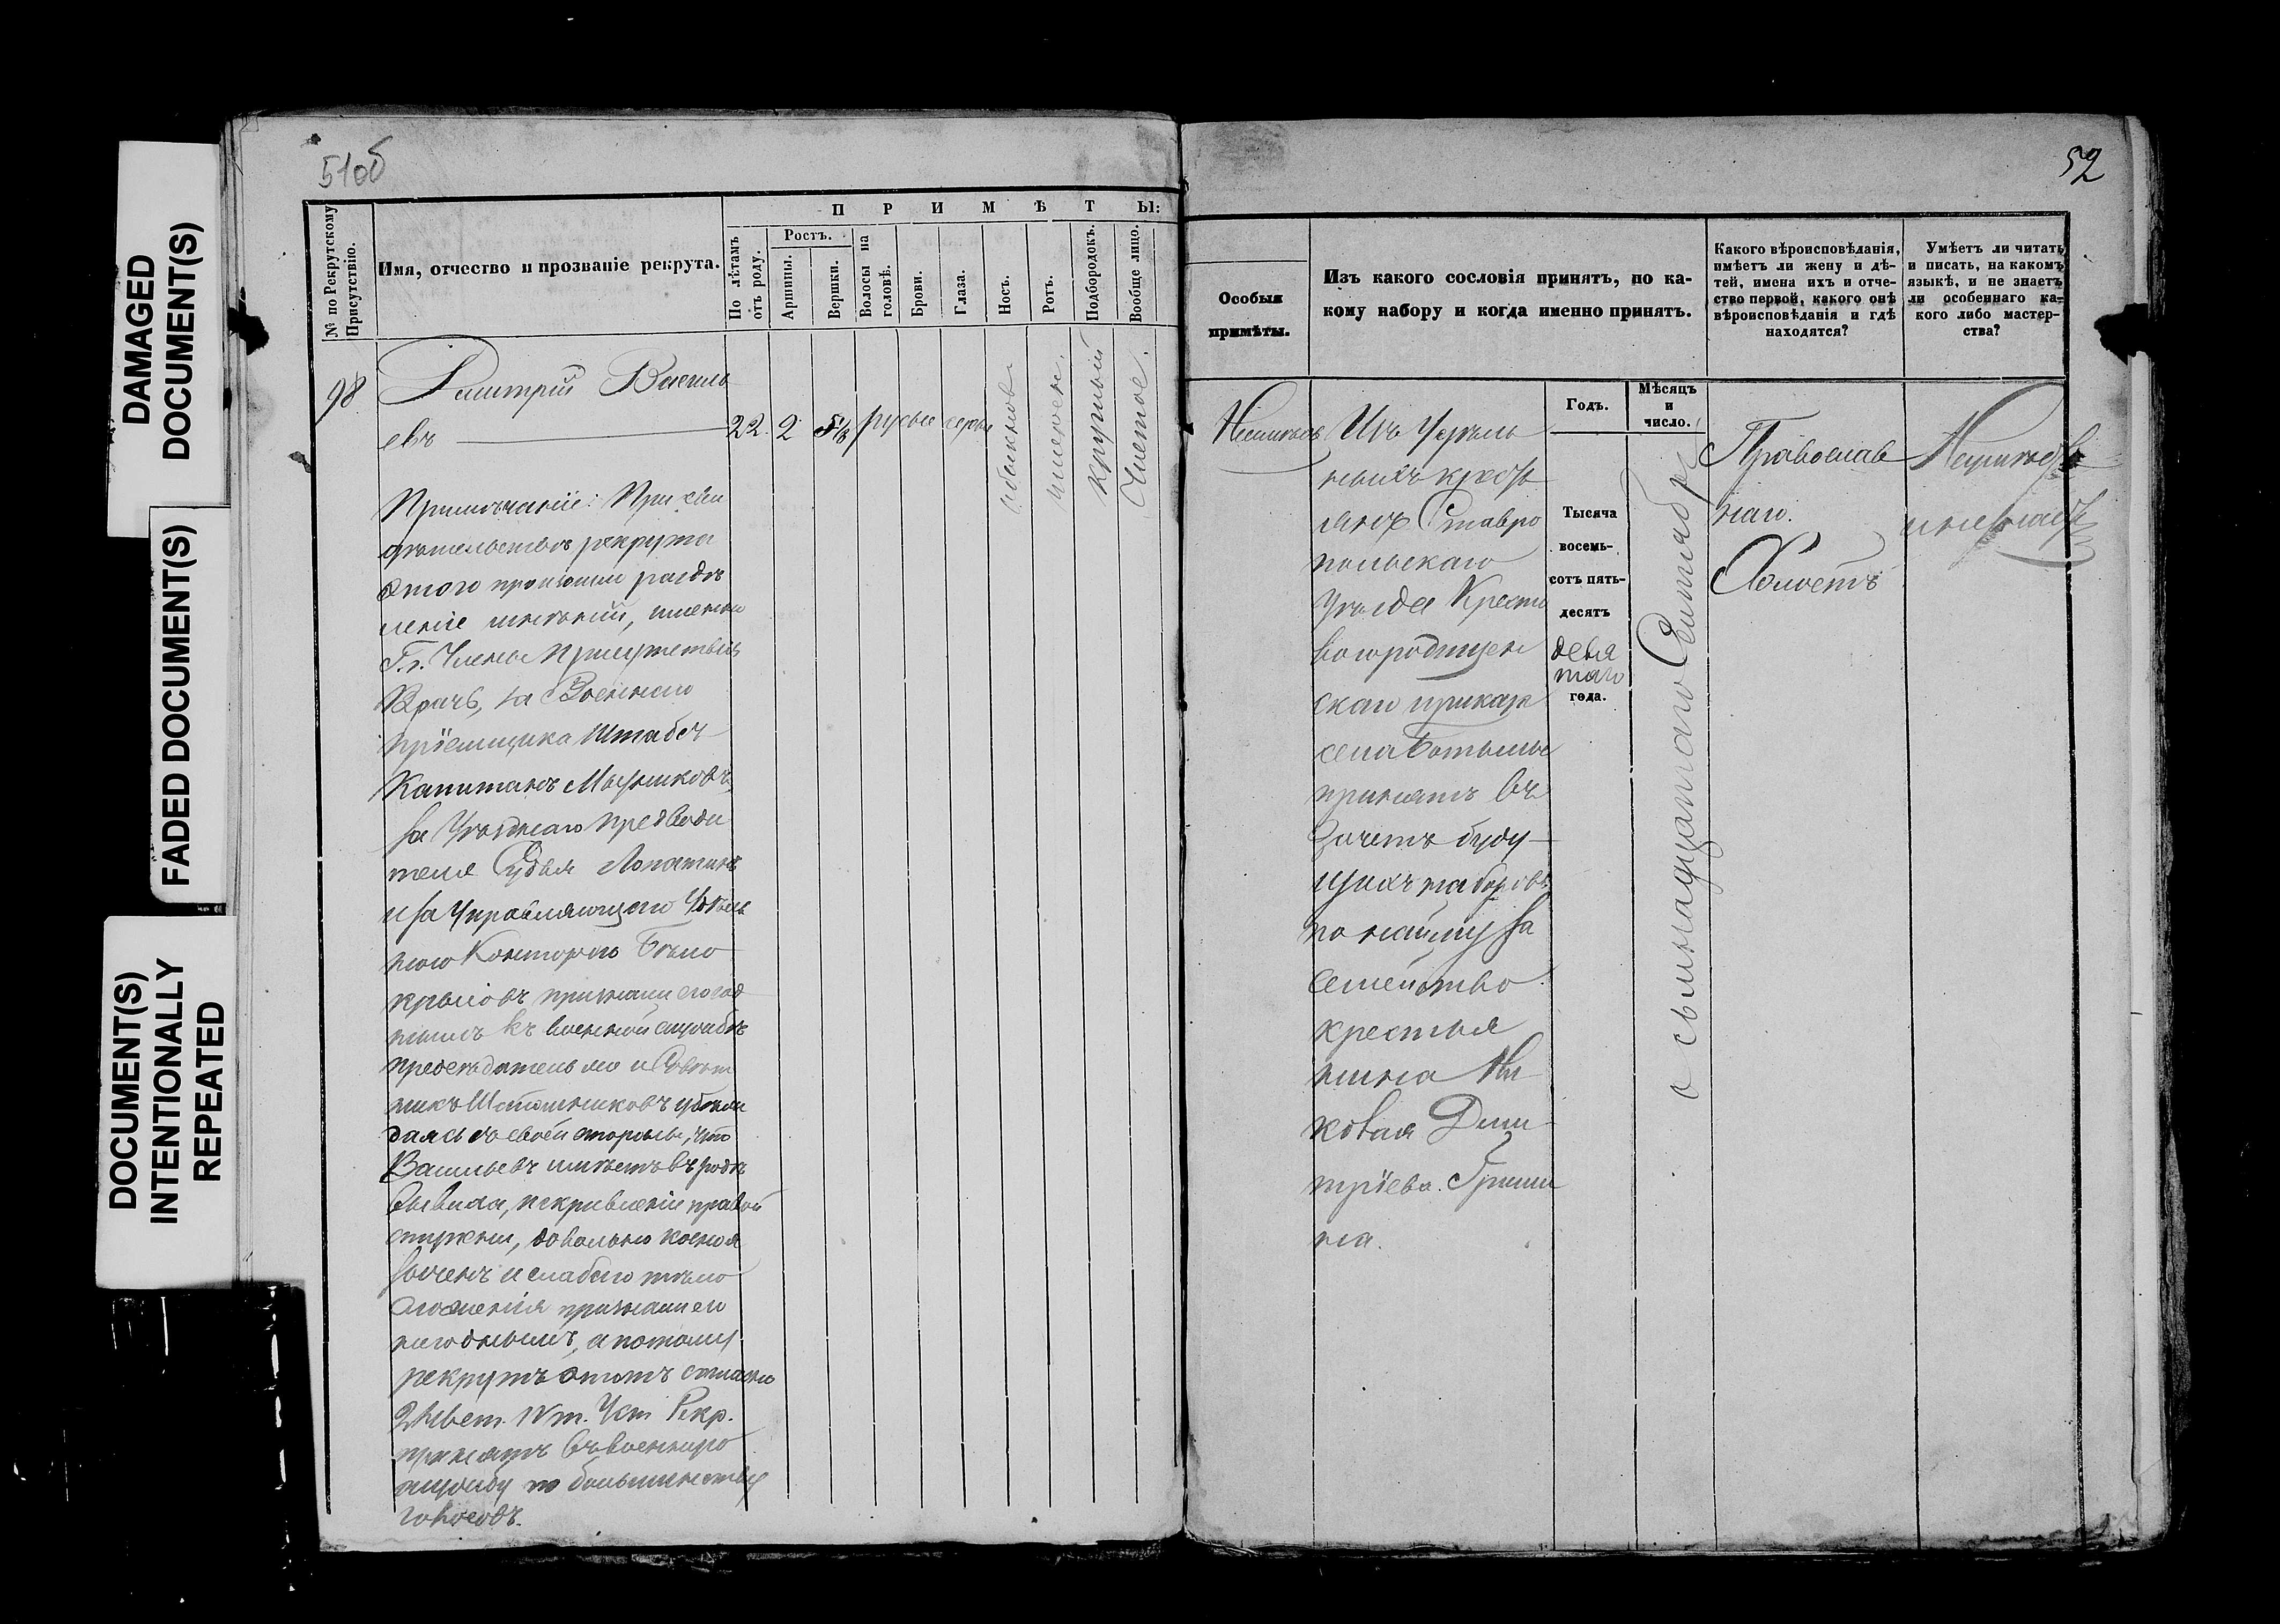 DAMAGED
DOCUMENT(S)
FADED DOCUMENT(S)
DOCUMENT(S)
INTENTIONALLY
REPEATED
51об
№ по Рекрутскому
Присутствію.
Имя, отчество и прозваніе рекрута.
ПРИМѢТЫ:
По лѣтамъ
отъ роду.
Ростъ.
Аршины.
Вершки.
Волосы на
головѣ.
Брови.
Глаза.
Носъ.
Ротъ.
Подбородокъ.
Вообще лицо.
98
Дмитрій Василь
евъ
22. 2 русые серые
обыкнов
умерен.
круглый
Чистое.
Примѣчаніе: При сви
дѣтельствѣ рекрута
этого произошли раздѣ
леніе мнѣній, именно
Гг. Члены Присутствія
Врачъ, за Военнаго
пріемщика Штабсъ
Капитанъ
за Уѣзднаго предводи
теля Судья Лопатинъ
и за Управляющаго Удѣль
ною Конторою Бѣло
крыловъ признали его год
нымъ къ военной службѣ
председатель же и Совѣт
никъ убѣж
даясь съ своей стороны, что
Васильевъ имѣетъ въ родѣ
вывиха, искривленіе правой
ступни, довольно
и слабаго тѣло
сложенія признали его
негоднымъ, а потому
рекрутъ этотъ согласно
Уст Рекр.
принятъ въ военную
службу по большинству
голосовъ.
52
Особыя
примѣты.
Изъ какого сословія принятъ, по ка-
кому набору и когда именно принятъ.
Какого вѣроисповѣданія,
имѣетъ ли жену и дѣ-
тей, имена ихъ и отче-
ство первой, какого онѣ
вѣроисповѣданія и гдѣ
находятся?
Умѣетъ ли читать
и писать, на какомъ
языкѣ, и не знаетъ
ли особеннаго ка-
кого либо мастер-
ства?
Годъ.
Мѣсяцъ
и
число.
Изъ Удѣль
ныхъ кресть
янъ Ставро
польскаго
Уѣзда Кресто
вогородищен
скаго приказа
села
принятъ въ
зачетъ буду-
щихъ наборовъ
по найму за
семейство
крестья
нина Яковa Дми
тріева Гриши
на.
Тысяча
восемь-
сотъ пять-
десятъ
девя
таго
года.
о семнадцатаго Сентября
Православ
наго.
Холостъ